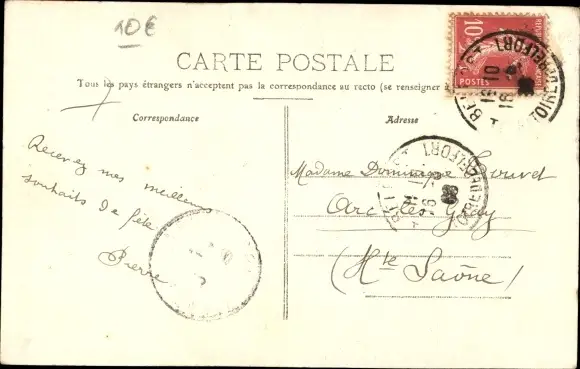 10€
CARTE POSTALE
Tous les pays étrangers n'acceptent pas la correspondance au recto (se renseigner à
Correspondance
Adresse
10
POSTES
BELFORT
Recevez mes meilleurs
souhaits de fête
Pierre
Madame Dominique Louvet
Arc les Gray
(Hte Saône)